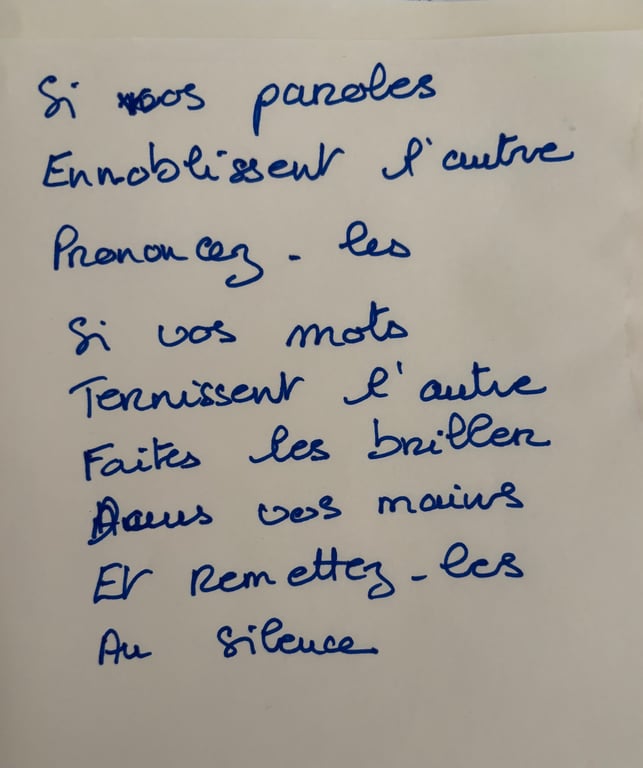 Si vos paroles
Ennoblissent l'autre
Prononcez-les
Si vos mots
Ternissent l'autre
Faites les briller
Dans vos mains
Et Remettez-les
Au silence